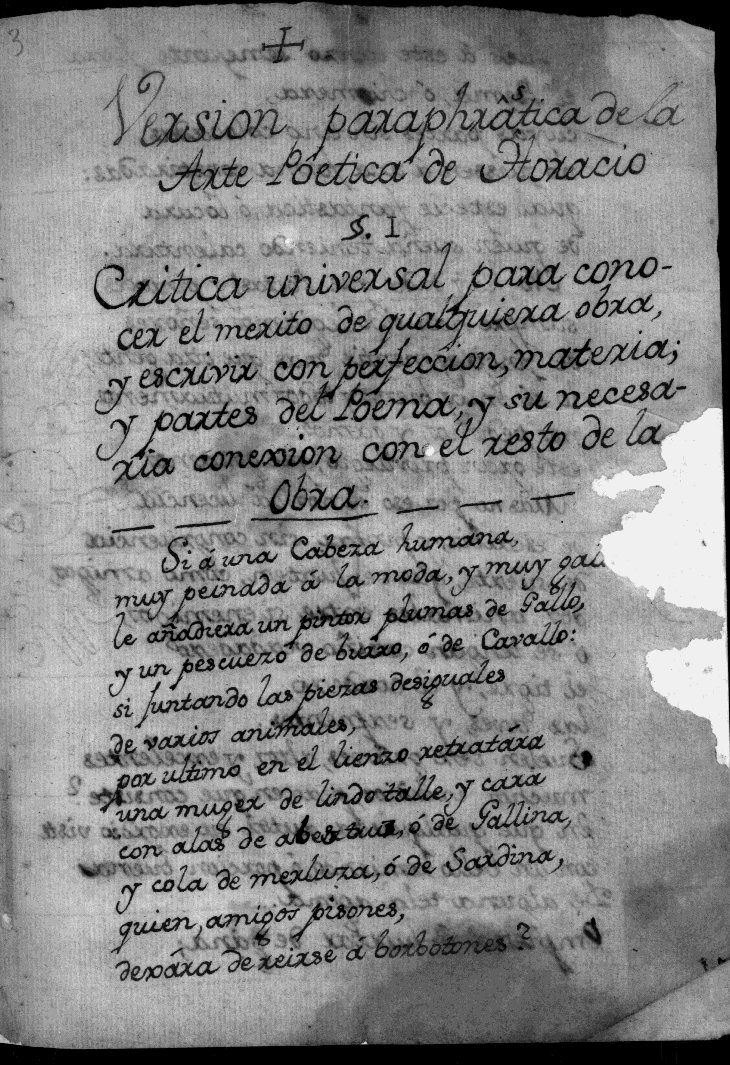 3
Version paraphrâstica de la
Arte Póetica de Horacio
§. I
Critica universal para cono-
cer el merito de qualquiera obra,
y escrivir con perfeccion, materia;
y partes del Póema, y su necesa-
ria conexion con el resto de la
Obra.
Si á una Cabeza humana,
muy peinada á la moda, y muy
le añadiera un pintor plumas de Gallo,
y un pescuezo de burro, ó de Cavallo:
si juntando las piezas desiguales
de varios animales,
por ultimo en el lienzo retratára
una muger de lindo talle, y cara
con alas de abestruz, ó de Gallina,
y cola de merluza, ó de Sardina,
quien, amigos pisones,
dexára de reirse á borbotones?